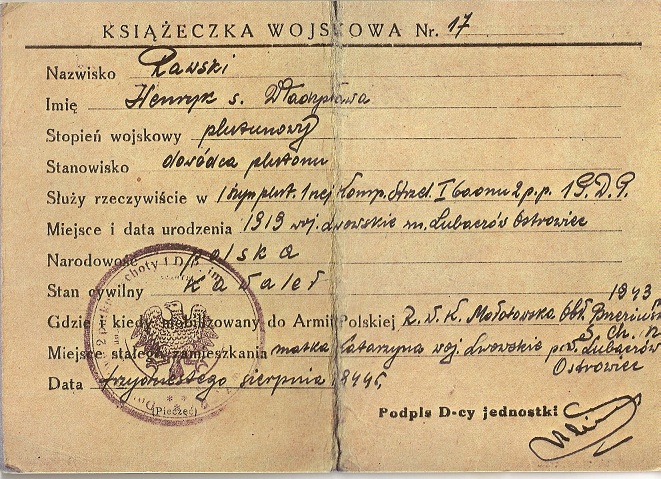 KSIĄŻECZKA WOJSKOWA Nr. 17
Nazwisko Rawski
Imię Henryk s. Władysława
Stopień wojskowy plutunowy
Stanowisko dowódca plutonu
Służy rzeczywiście w 1 plut. 1nej Komp. Strzel. I baonu 2 p.p. 1 P.D.P.
Miejsce i data urodzenia 1919 woj. Lwowskie m. Lubaczów Ostrowiec
Narodowość Polska
Stan cywilny Kawaler
1943
Gdzie i kiedy mobilizowany do Armii Polskiej R.W.K. Mołotowska Obł.
Miejsce stałego zamieszkania matka Katarzyna woj. Lwowskie pow. Lubaczów
Ostrowiec
Data trzydziestego sierpnia
(Pieczęć)
Podpis D-cy jednostki